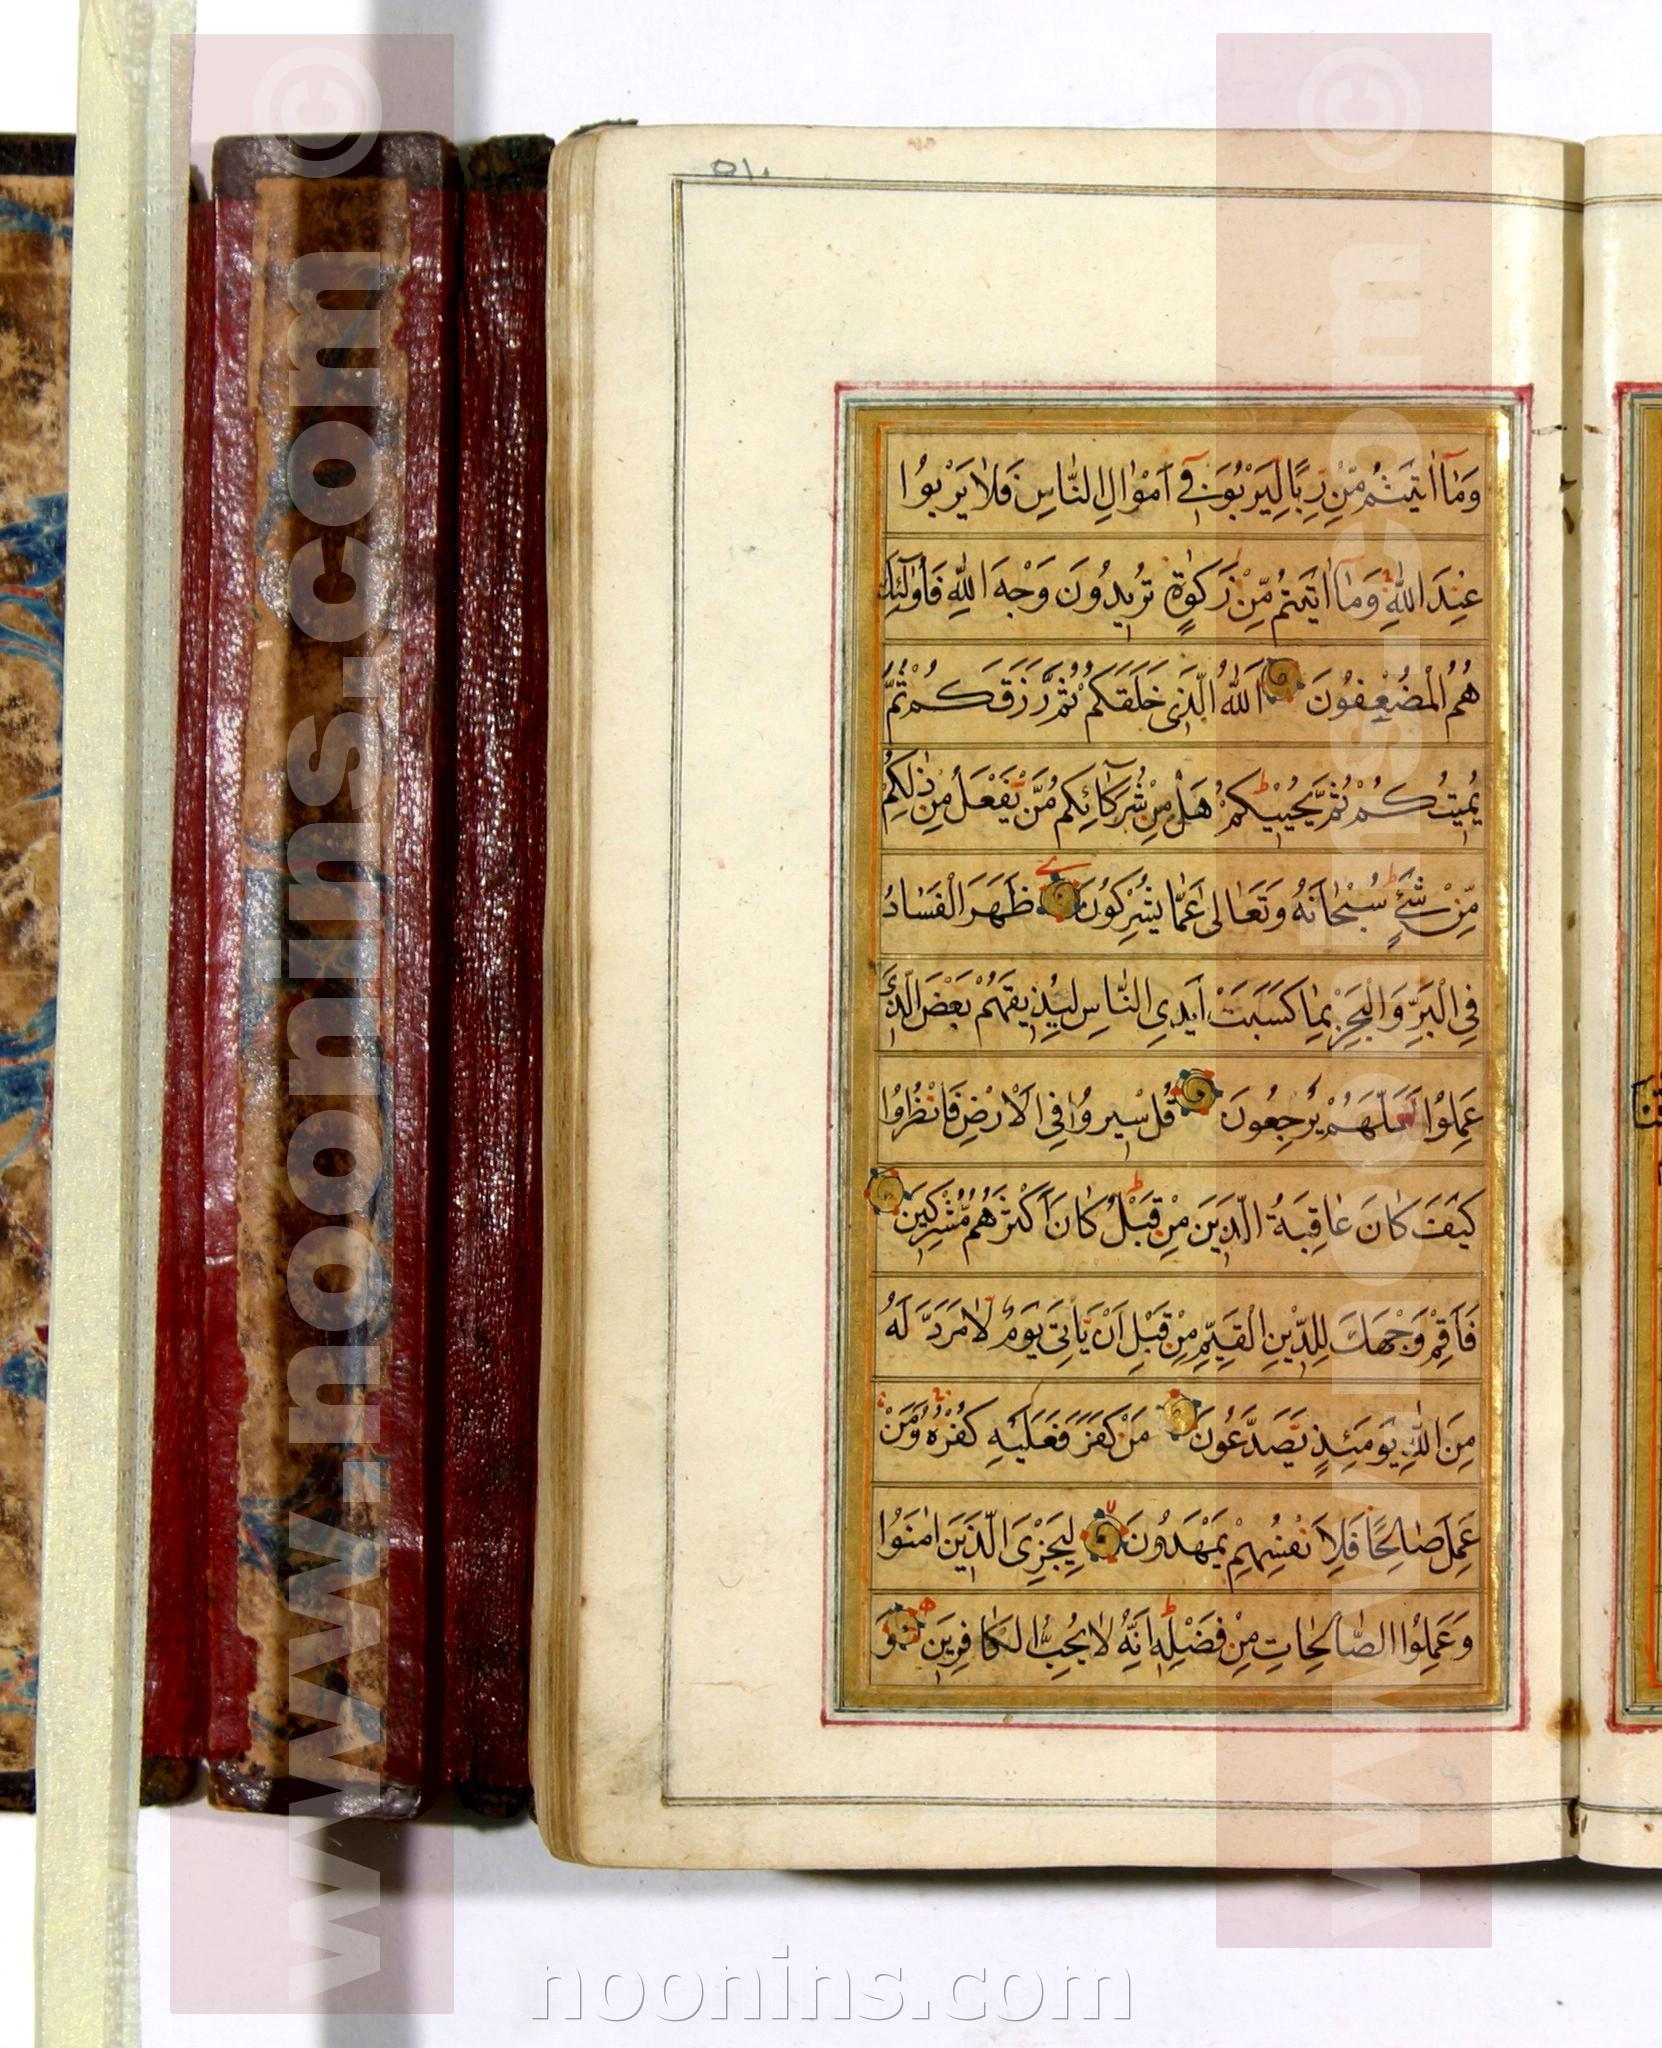 وَمٰآ اٰتَيْتُمْ مِنْ رِبًا لِيَرْبُوَ۬ فِي اَمْوٰالِ النّٰاسِ فَلٰا يَرْبُوا
عِنْدَ اللّٰهِ وَمٰآ اٰتَيْتُمْ مِنْ زَكٰوةٍ تُرِيدُونَ وَجْهَ اللّٰهِ فَاُولٰٓئِكَ
هُمُ الْمُضْعِفُونَ اَللّٰهُ الَّذِي خَلَقَكُمْ ثُمَّ رَزَقَكُمْ ثُمَّ
يُمِيتُكُمْ ثُمَّ يُحْيِيكُمْ هَلْ مِنْ شُرَكٰآئِكُمْ مَنْ يَفْعَلُ مِنْ ذٰلِكُمْ
مِنْ شَيْءٍ سُبْحٰانَهُ وَتَعٰالىٰ عَمّٰا يُشْرِكُونَ ظَهَرَ الْفَسٰادُ
فِي الْبَرِّ وَالْبَحْرِ بِمٰا كَسَبَتْ اَيْدِي النّٰاسِ لِيُذِيقَهُمْ بَعْضَ الَّذِي
عَمِلُوا لَعَلَّهُمْ يَرْجِعُونَ قُلْ سِيرُوا فِي الْاَرْضِ فَانْظُرُوا
كَيْفَ كٰانَ عٰاقِبَةُ الَّذِينَ مِنْ قَبْلُ كٰانَ اَكْثَرُهُمْ مُشْرِكِينَ
فَاَقِمْ وَجْهَكَ لِلدِّينِ الْقَيِّمِ مِنْ قَبْلِ اَنْ يَاْتِيَ يَوْمٌ لٰا مَرَدَّ لَهُ
مِنَ اللّٰهِ يَوْمَئِذٍ يَصَّدَّعُونَ مَنْ كَفَرَ فَعَلَيْهِ كُفْرُهُ وَمَنْ
عَمِلَ صٰالِحًا فَلِاَنْفُسِهِمْ يَمْهَدُونَ لِيَجْزِيَ الَّذِينَ اٰمَنُوا
وَعَمِلُوا الصّٰالِحٰاتِ مِنْ فَضْلِهِ اِنَّهُ لٰا يُحِبُّ الْكٰافِرِينَ وَ
www.noonins.com ©
www.noonins.com ©
noonins.com